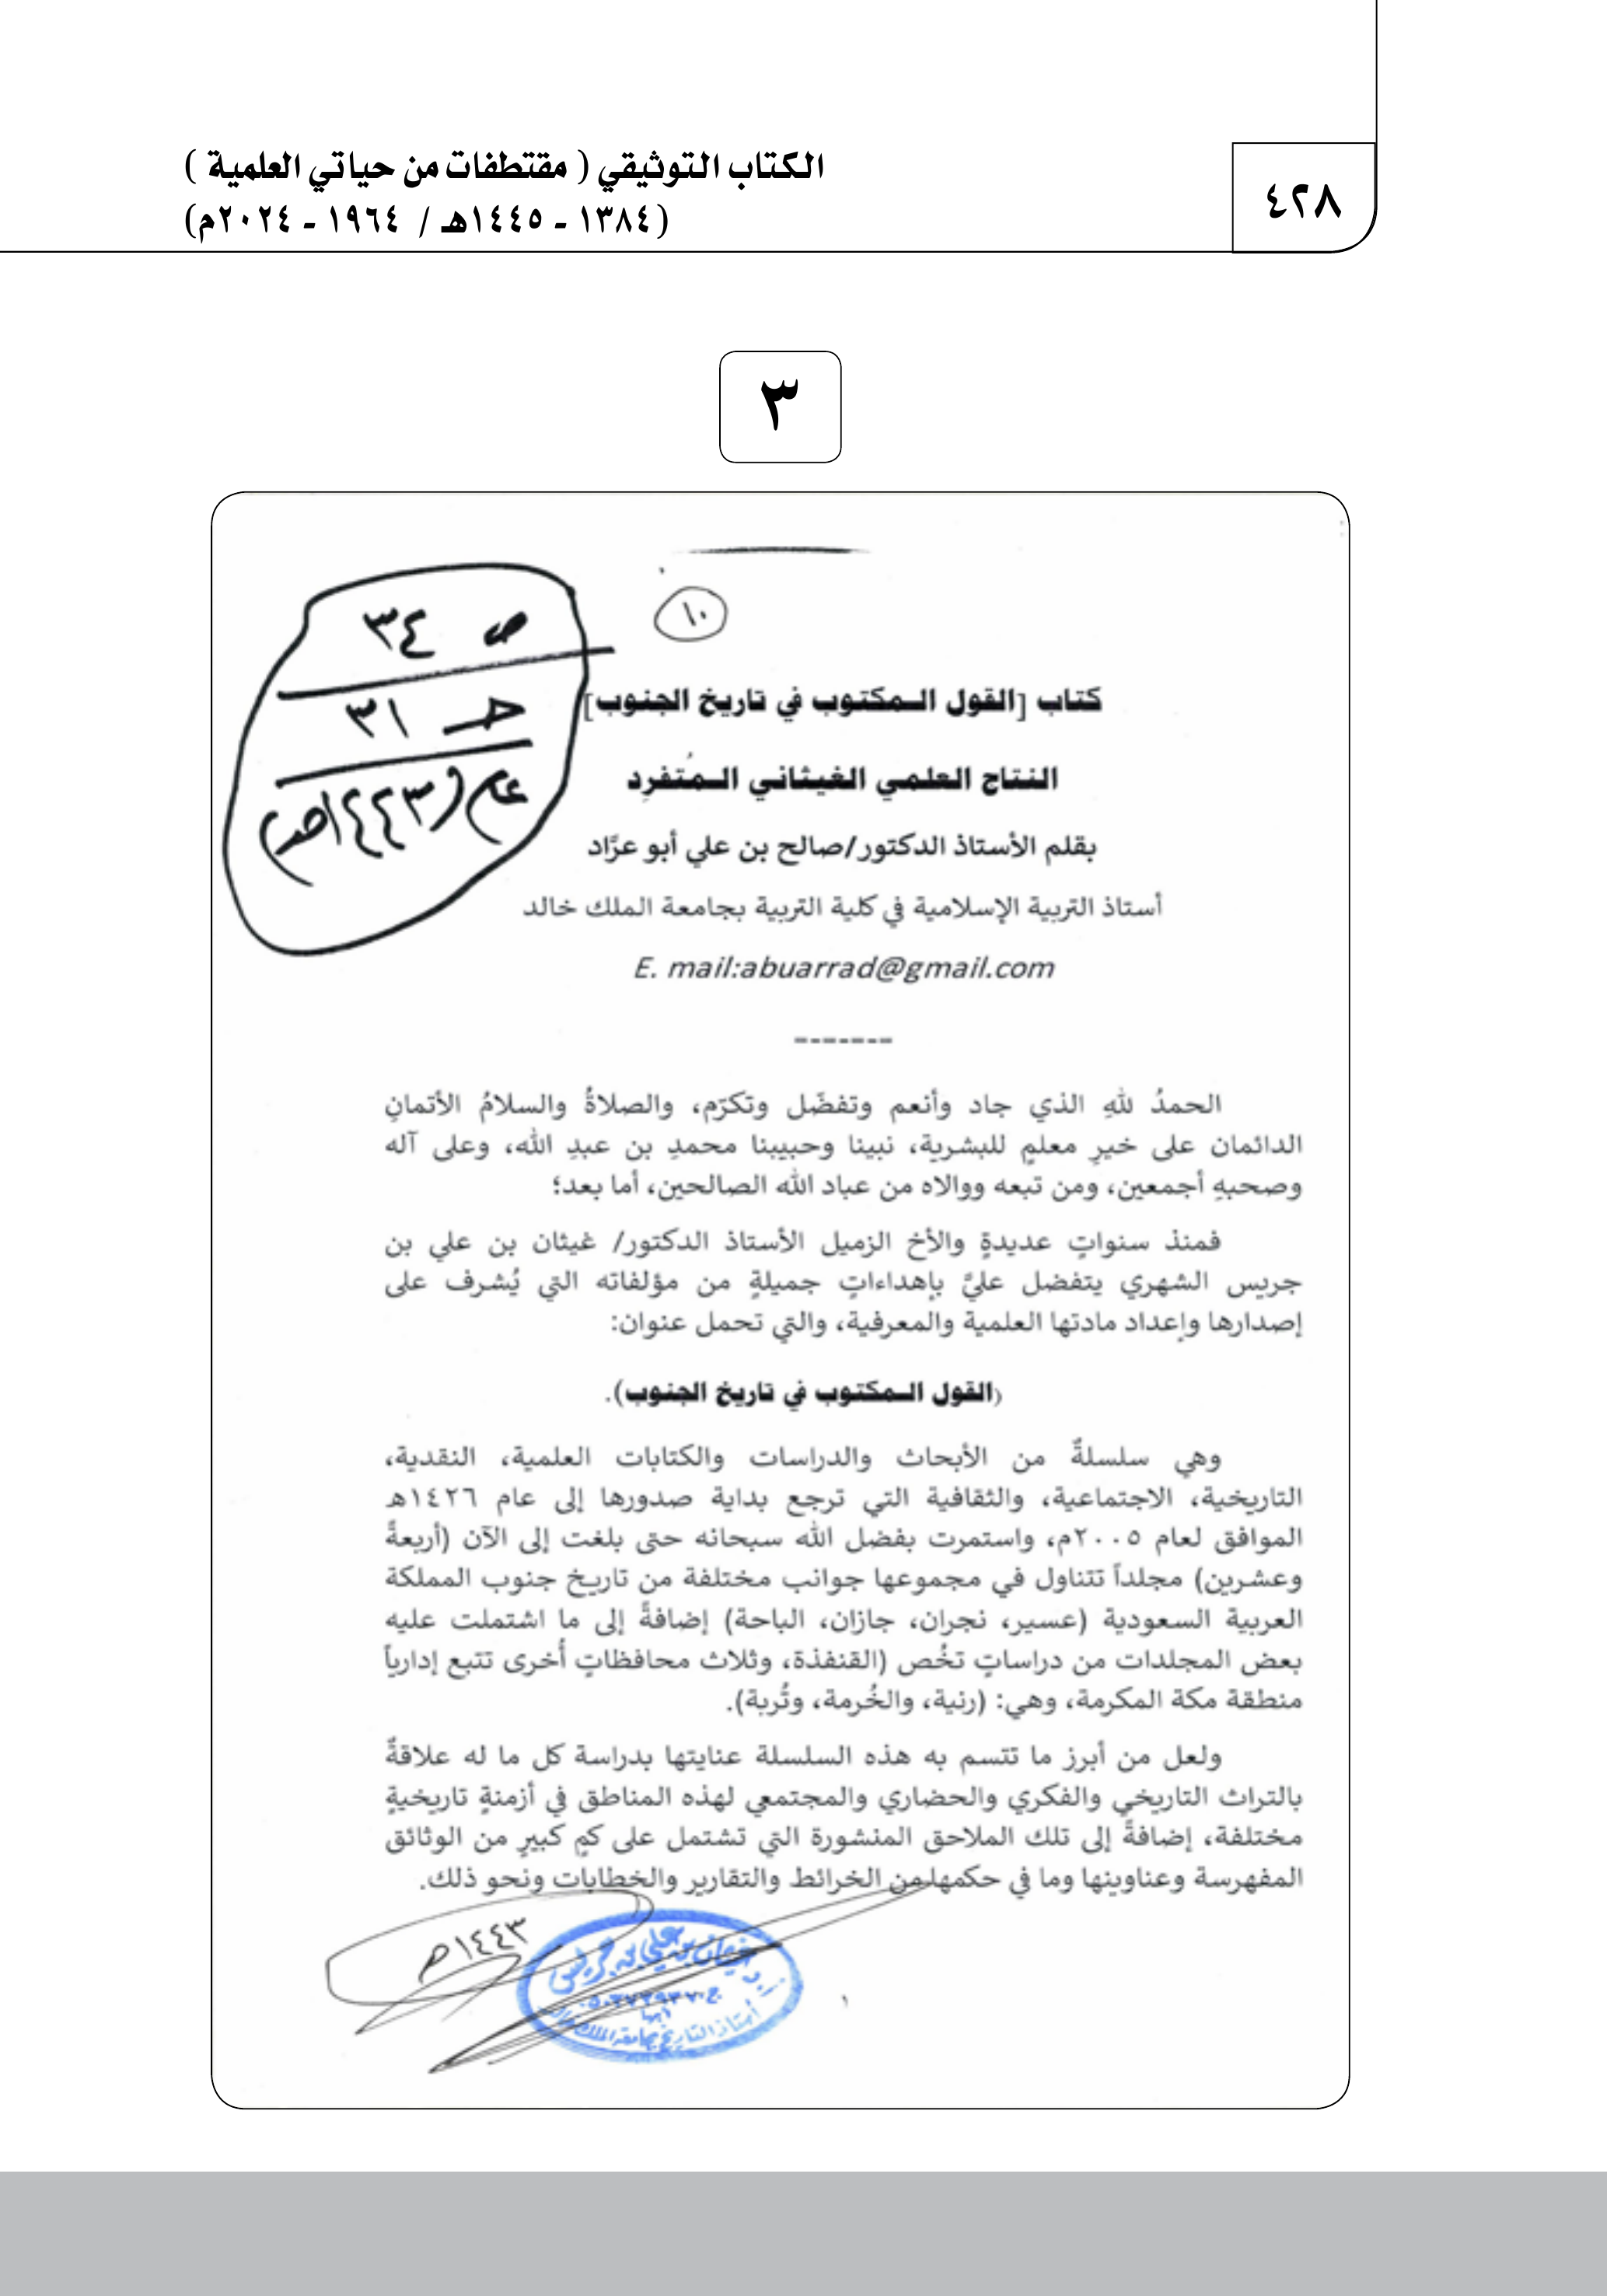 ٤٢٨
الكتاب التوثيقي ( مقتطفات من حياتي العلمية )
(١٣٨٤ - ١٤٤٥هـ / ١٩٦٤ - ٢٠٢٤م)
٣
١٠
ص ٣٤
جـ ٣١
عام (١٤٤٣هـ)
كتاب [القول المكتوب في تاريخ الجنوب]
النتاج العلمي الغيثاني المُتفرِد
بقلم الأستاذ الدكتور/صالح بن علي أبو عرَّاد
أستاذ التربية الإسلامية في كلية التربية بجامعة الملك خالد
E. mail:abuarrad@gmail.com
-------
الحمدُ للهِ الذي جاد وأنعم وتفضّل وتكرّم، والصلاةُ والسلامُ الأتمانِ
الدائمان على خيرِ معلمٍ للبشرية، نبينا وحبيبنا محمدِ بن عبدِ الله، وعلى آله
وصحبهِ أجمعين، ومن تبعه ووالاه من عباد الله الصالحين، أما بعد؛
فمنذ سنواتٍ عديدةٍ والأخ الزميل الأستاذ الدكتور/ غيثان بن علي بن
جريس الشهري يتفضل عليَّ بإهداءاتٍ جميلةٍ من مؤلفاته التي يُشرف على
إصدارها وإعداد مادتها العلمية والمعرفية، والتي تحمل عنوان:
(القول المكتوب في تاريخ الجنوب).
وهي سلسلةٌ من الأبحاث والدراسات والكتابات العلمية، النقدية،
التاريخية، الاجتماعية، والثقافية التي ترجع بداية صدورها إلى عام ١٤٢٦هـ
الموافق لعام ٢٠٠٥م، واستمرت بفضل الله سبحانه حتى بلغت إلى الآن (أربعةً
وعشرين) مجلداً تتناول في مجموعها جوانب مختلفة من تاريخ جنوب المملكة
العربية السعودية (عسير، نجران، جازان، الباحة) إضافةً إلى ما اشتملت عليه
بعض المجلدات من دراساتٍ تخُص (القنفذة، وثلاث محافظاتٍ أُخرى تتبع إدارياً
منطقة مكة المكرمة، وهي: (رنية، والخُرمة، وتُربة).
ولعل من أبرز ما تتسم به هذه السلسلة عنايتها بدراسة كل ما له علاقةٌ
بالتراث التاريخي والفكري والحضاري والمجتمعي لهذه المناطق في أزمنةٍ تاريخيةٍ
مختلفة، إضافةً إلى تلك الملاحق المنشورة التي تشتمل على كمٍ كبيرٍ من الوثائق
المفهرسة وعناوينها وما في حكمها من الخرائط والتقارير والخطابات ونحو ذلك.
١٤٤٣هـ
أ.د غيثان بن علي بن جريس
أبها
أستاذ التاريخ بجامعة الملك خالد
١